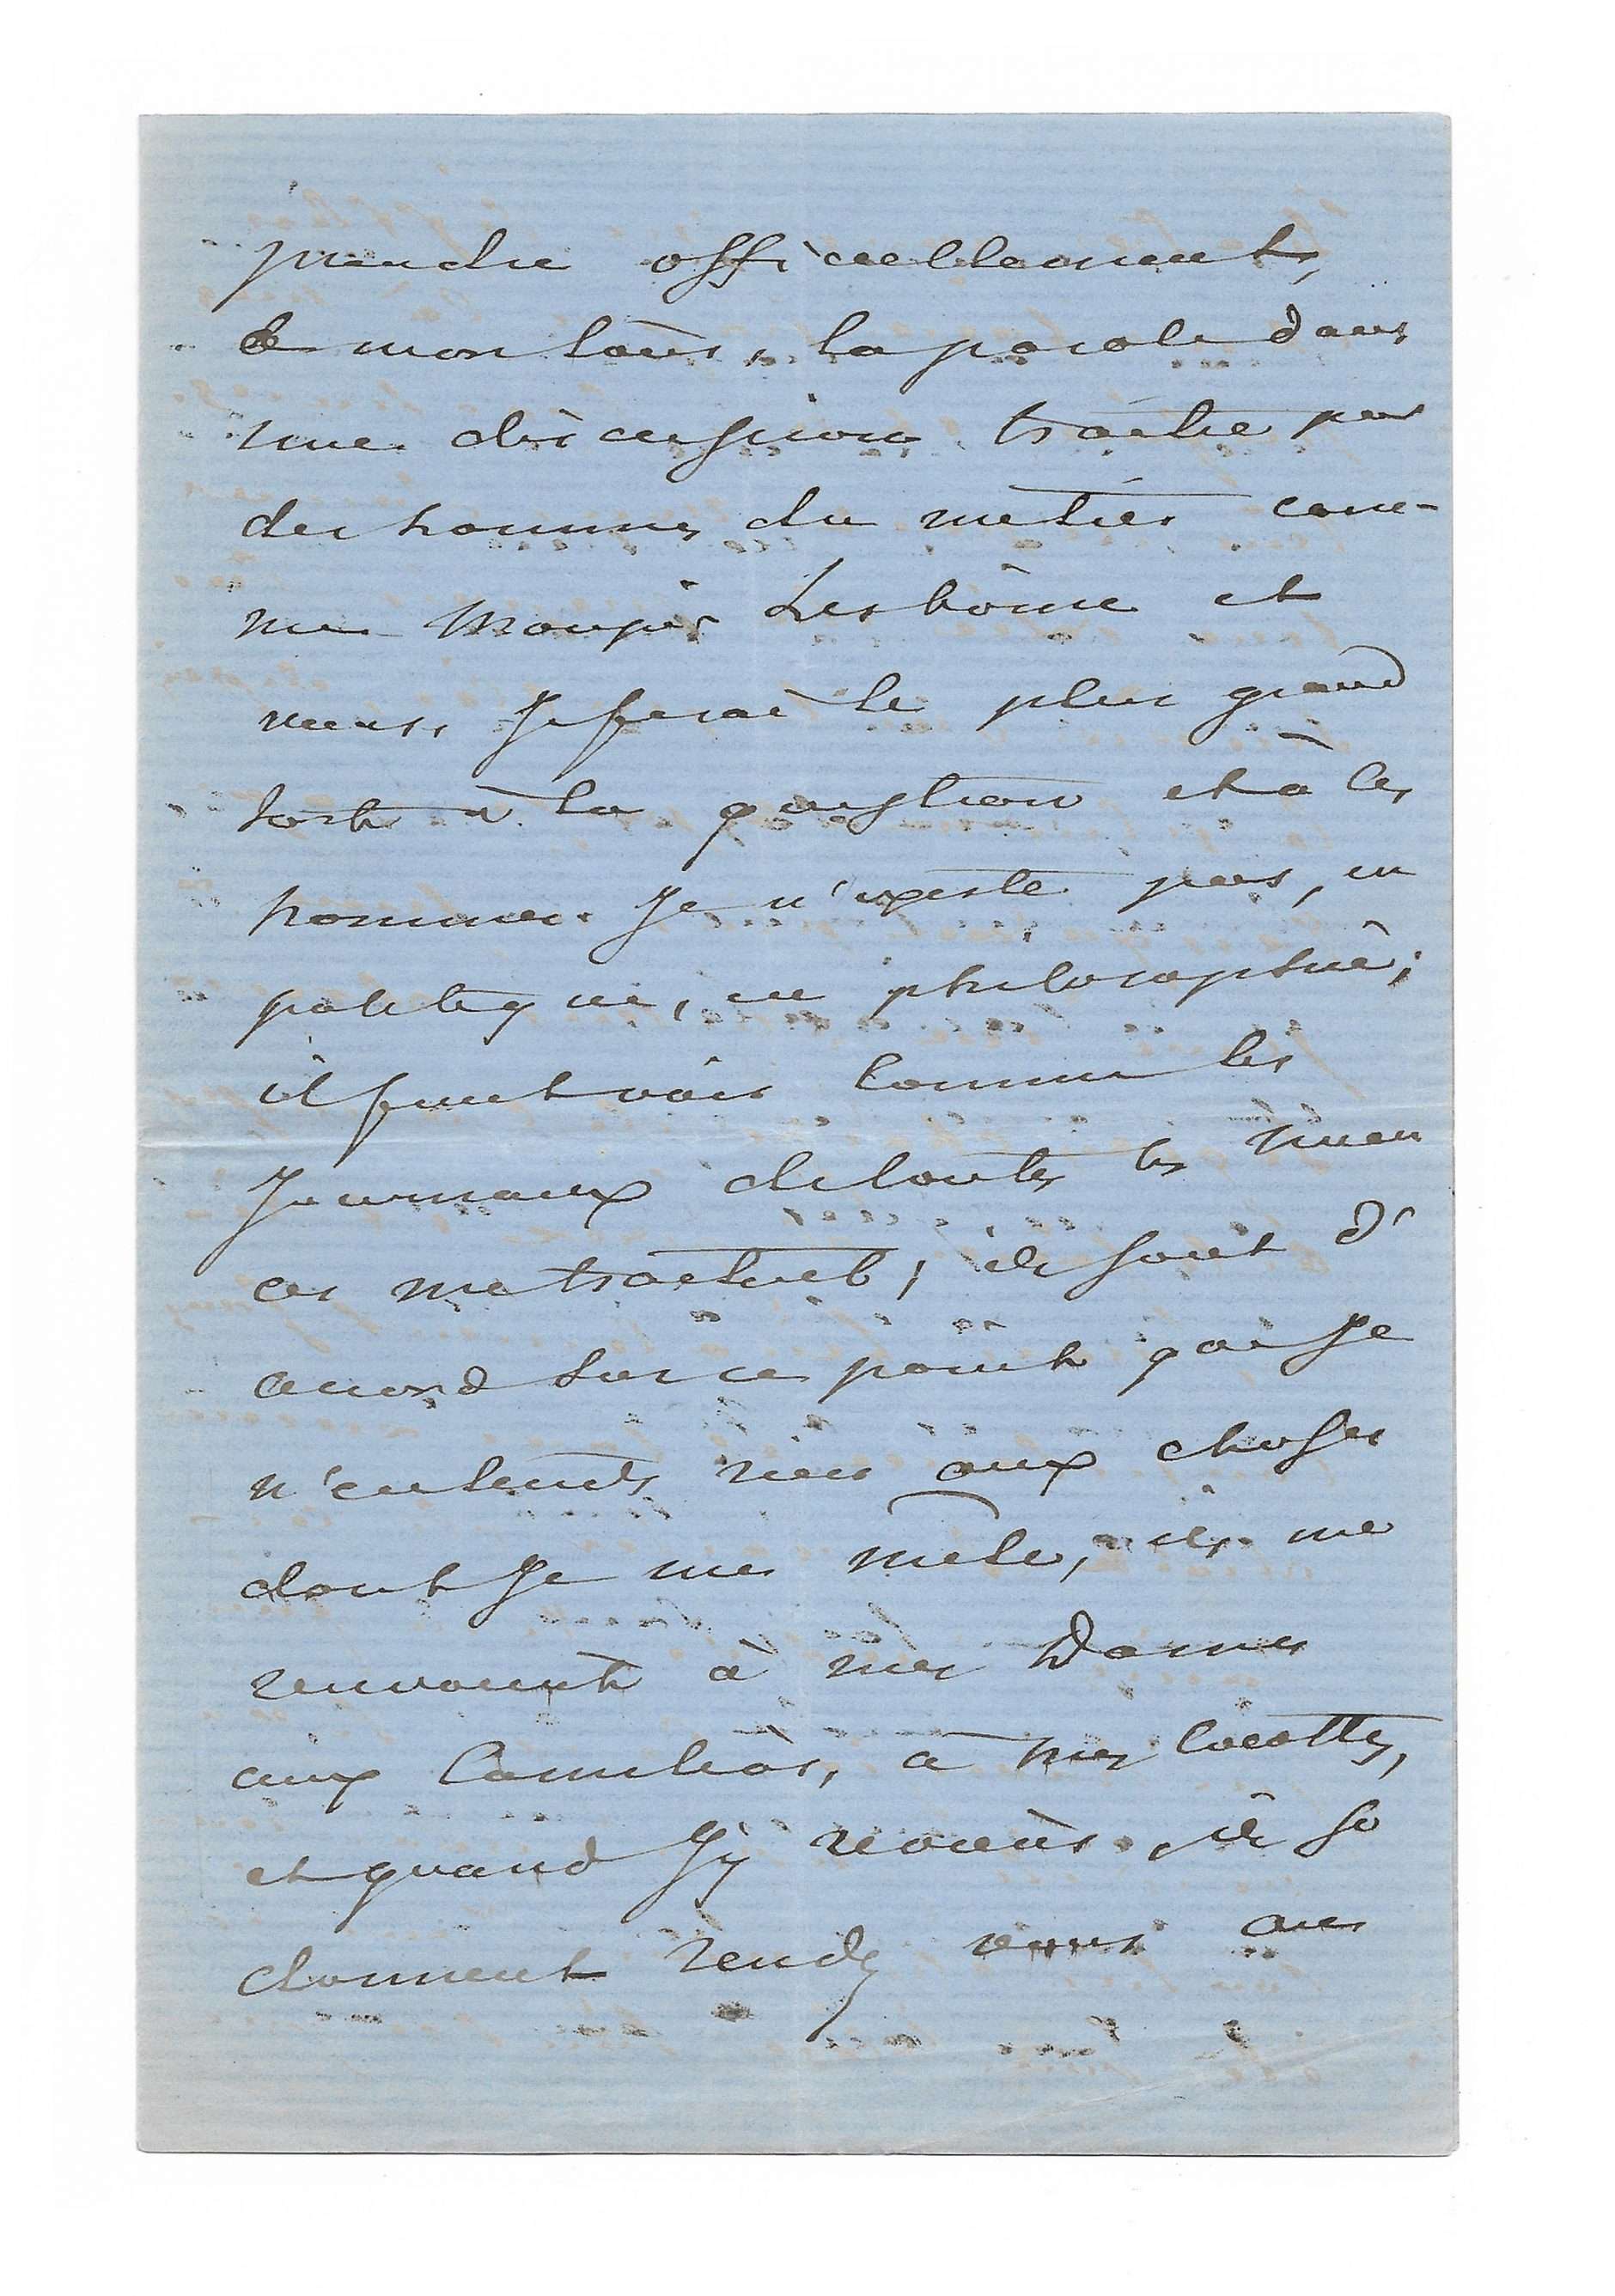 prendre officiellement,
à mon tour, la parole dans
une discussion traitée par
des hommes du métier com-
me Monsieur et
vous, je ferai le plus grand
tort à la question et à ces
hommes. Je n'existe pas, en
politique, en philosophie;
il faut voir comme les
journaux de toutes les nuan
ces me traitent; ils sont d'
accord sur ce point que je
n'entends rien aux choses
dont je me mêle, ils me
renvoient à mes Dames
aux Camélias, à mes cocottes,
et quand j'y reviens, ils se
donnent rendez vous au